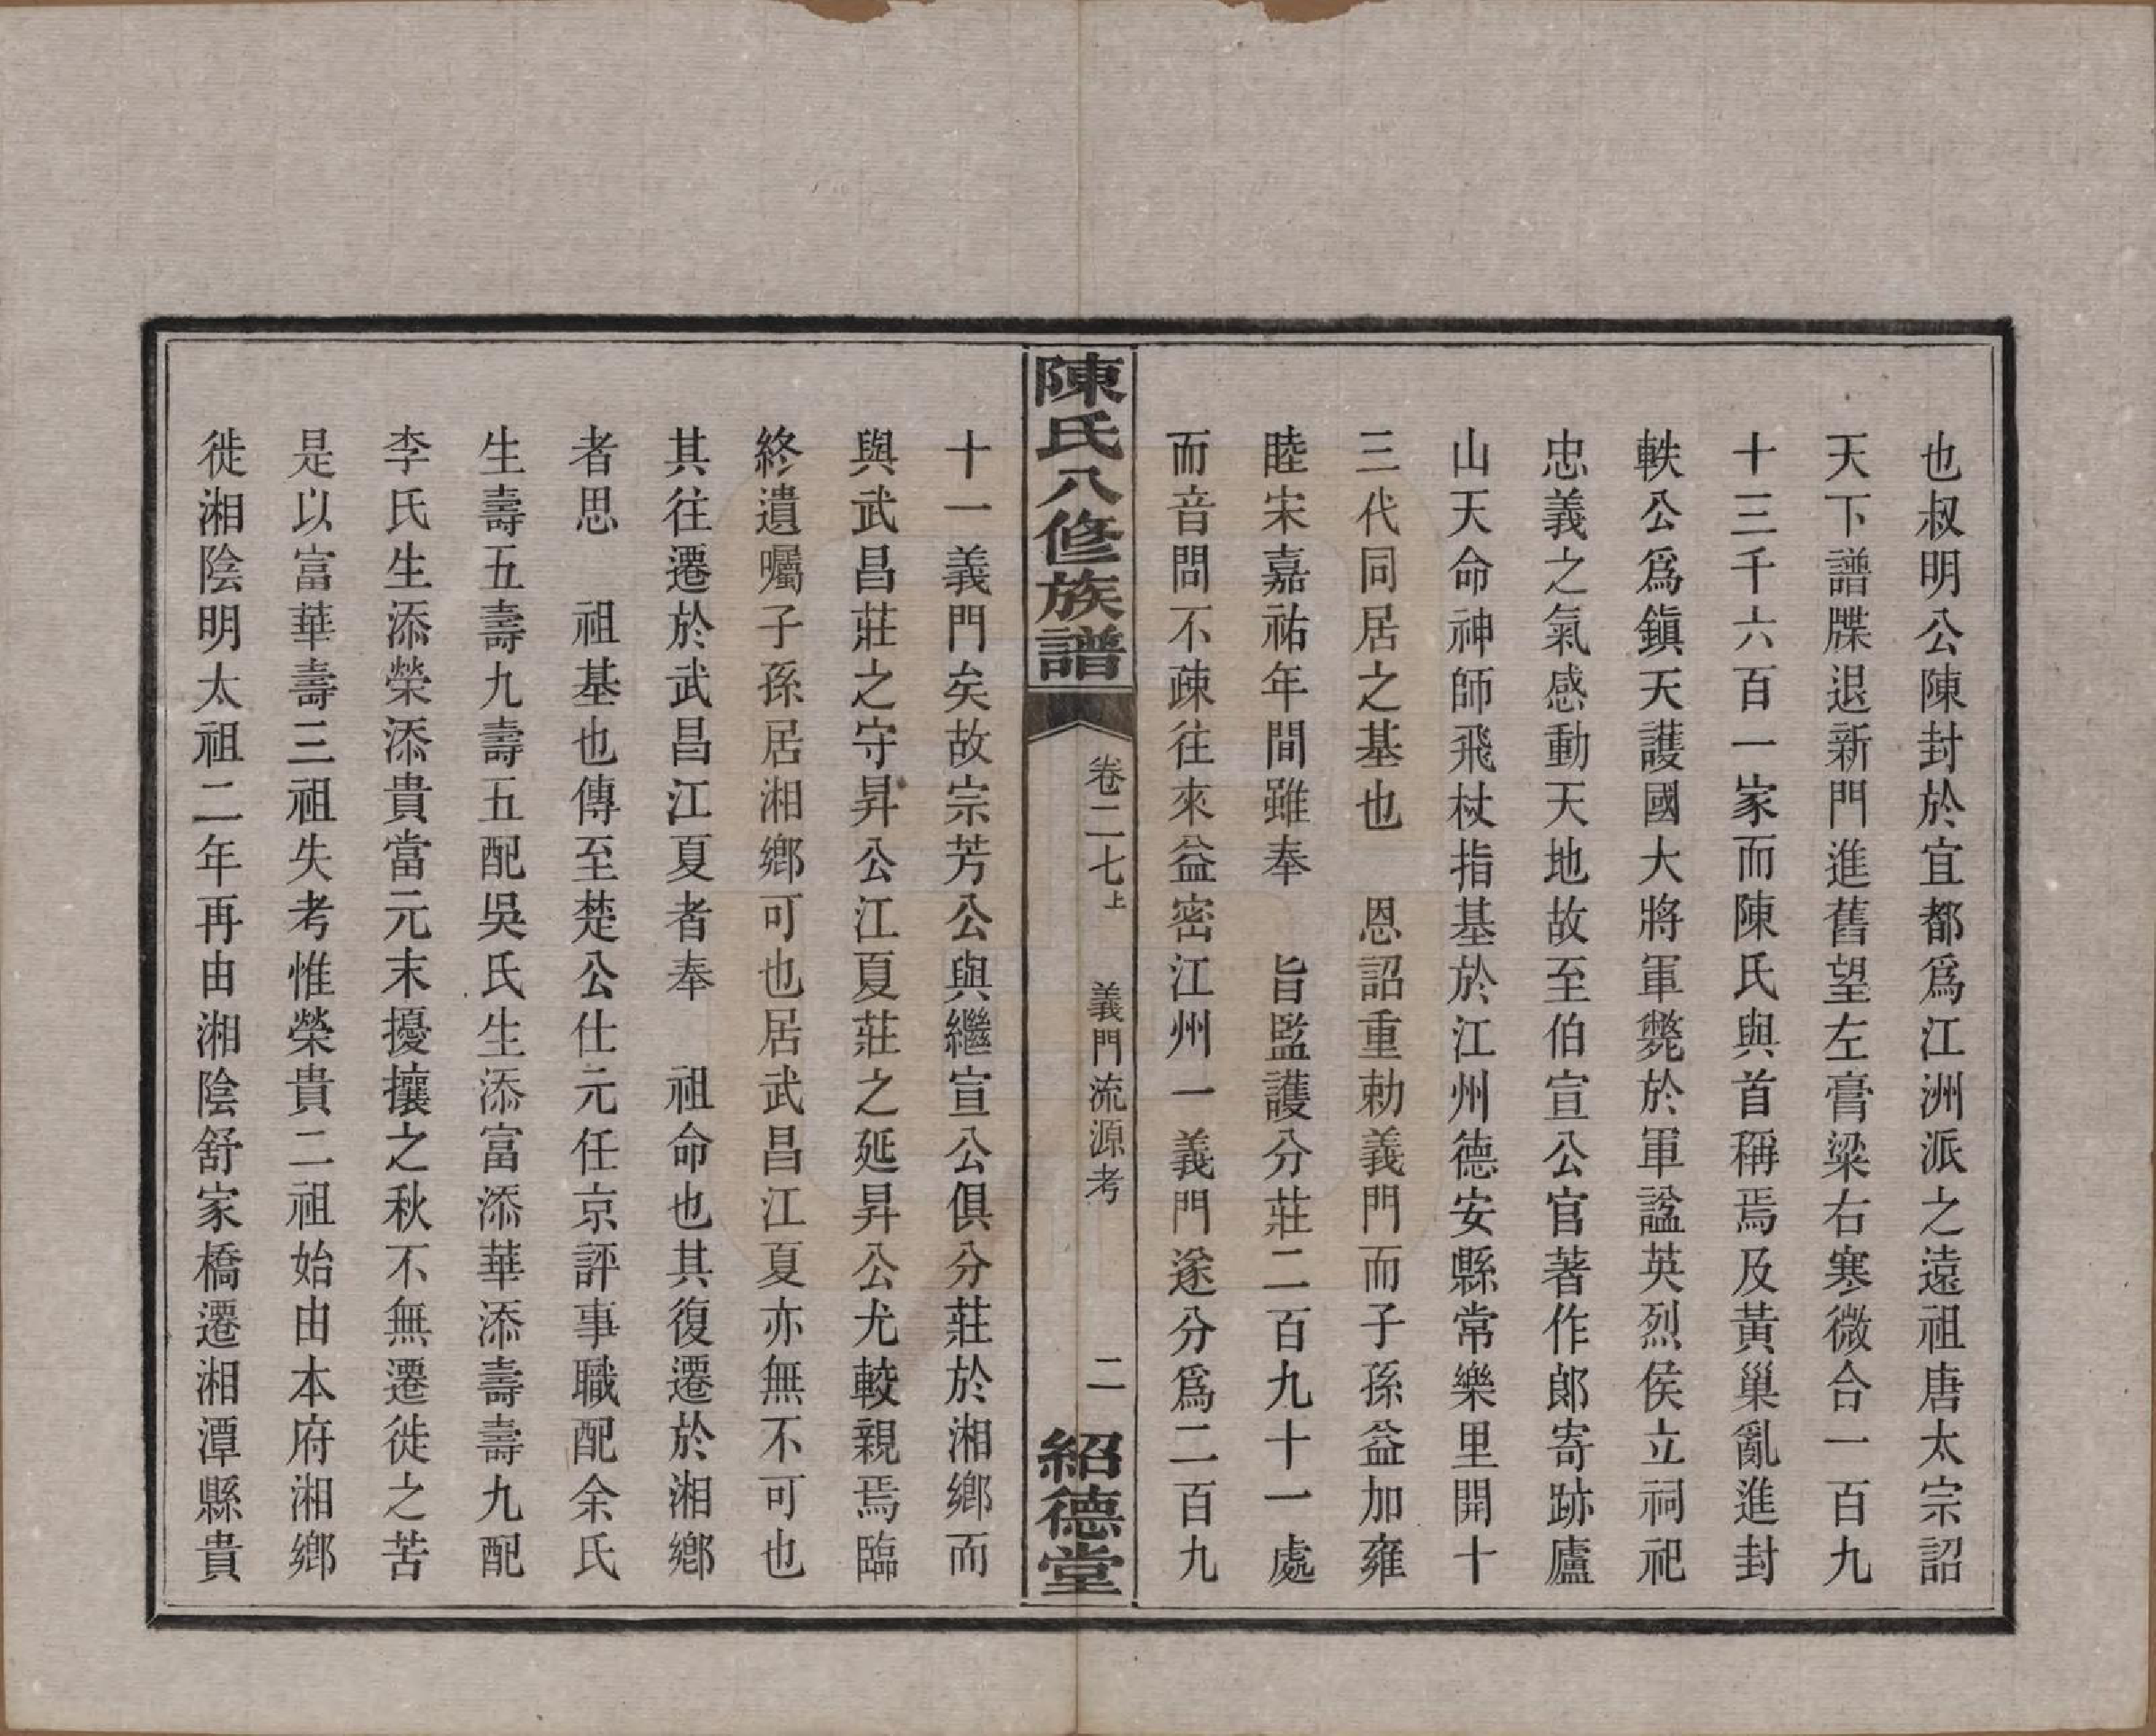 也叔明公陳封於宜都爲江洲派之遠祖唐太宗詔
天下譜牒退新門進舊望左膏粱右寒微合一百九
十三千六百一家而陳氏與首稱焉及黃巢亂進封
軼公爲鎭天護國大將軍斃於軍謚英烈侯立祠祀
忠義之氣感動天地故至伯宣公官著作郎寄跡廬
山天命神師飛杖指基於江州德安縣常樂里開十
三代同居之基也　恩詔重勅義門而子孫益加雍
睦宋嘉祐年間雖奉　旨監護分莊二百九十一處
而音問不疎往來益密江州一義門遂分爲二百九
陳氏八修族譜
卷二七上
義門流源考
二
紹德堂
十一義門矣故宗芳公與繼宣公俱分莊於湘鄉而
與武昌莊之守昇公江夏莊之延昇公尤較親焉臨
終遺囑子孫居湘鄉可也居武昌江夏亦無不可也
其往遷於武昌江夏者奉　祖命也其復遷於湘鄉
者思　祖基也傳至楚公仕元任京評事職配余氏
生壽五壽九壽五配吳氏生添富添華添壽壽九配
李氏生添榮添貴當元末擾攘之秋不無遷徙之苦
是以富華壽三祖失考惟榮貴二祖始由本府湘鄉
徙湘陰明太祖二年再由湘陰舒家橋遷湘潭縣貴